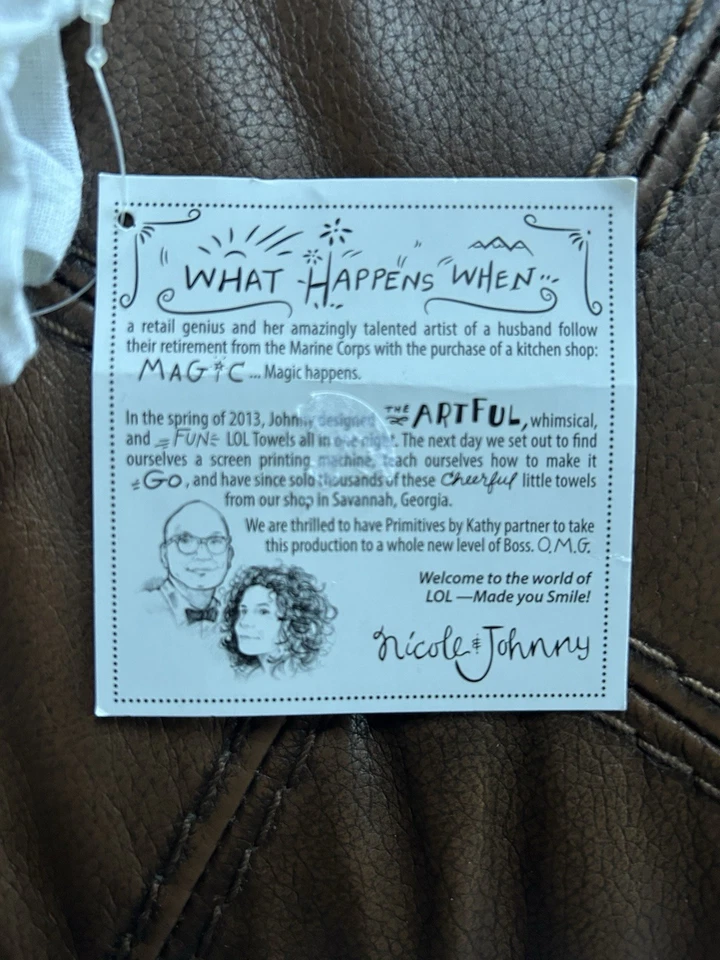 WHAT HAPPENS WHEN...
a retail genius and her amazingly talented artist of a husband follow
their retirement from the Marine Corps with the purchase of a kitchen shop:
MAGIC ... Magic happens.
In the spring of 2013, Johnny designed THE ARTFUL, whimsical,
and FUN LOL Towels all in one night. The next day we set out to find
ourselves a screen printing machine, teach ourselves how to make it
GO, and have since solo thousands of these Cheerful little towels
from our shop in Savannah, Georgia.
We are thrilled to have Primitives by Kathy partner to take
this production to a whole new level of Boss. O.M.G.
Welcome to the world of
LOL —Made you Smile!
Nicole & Johnny